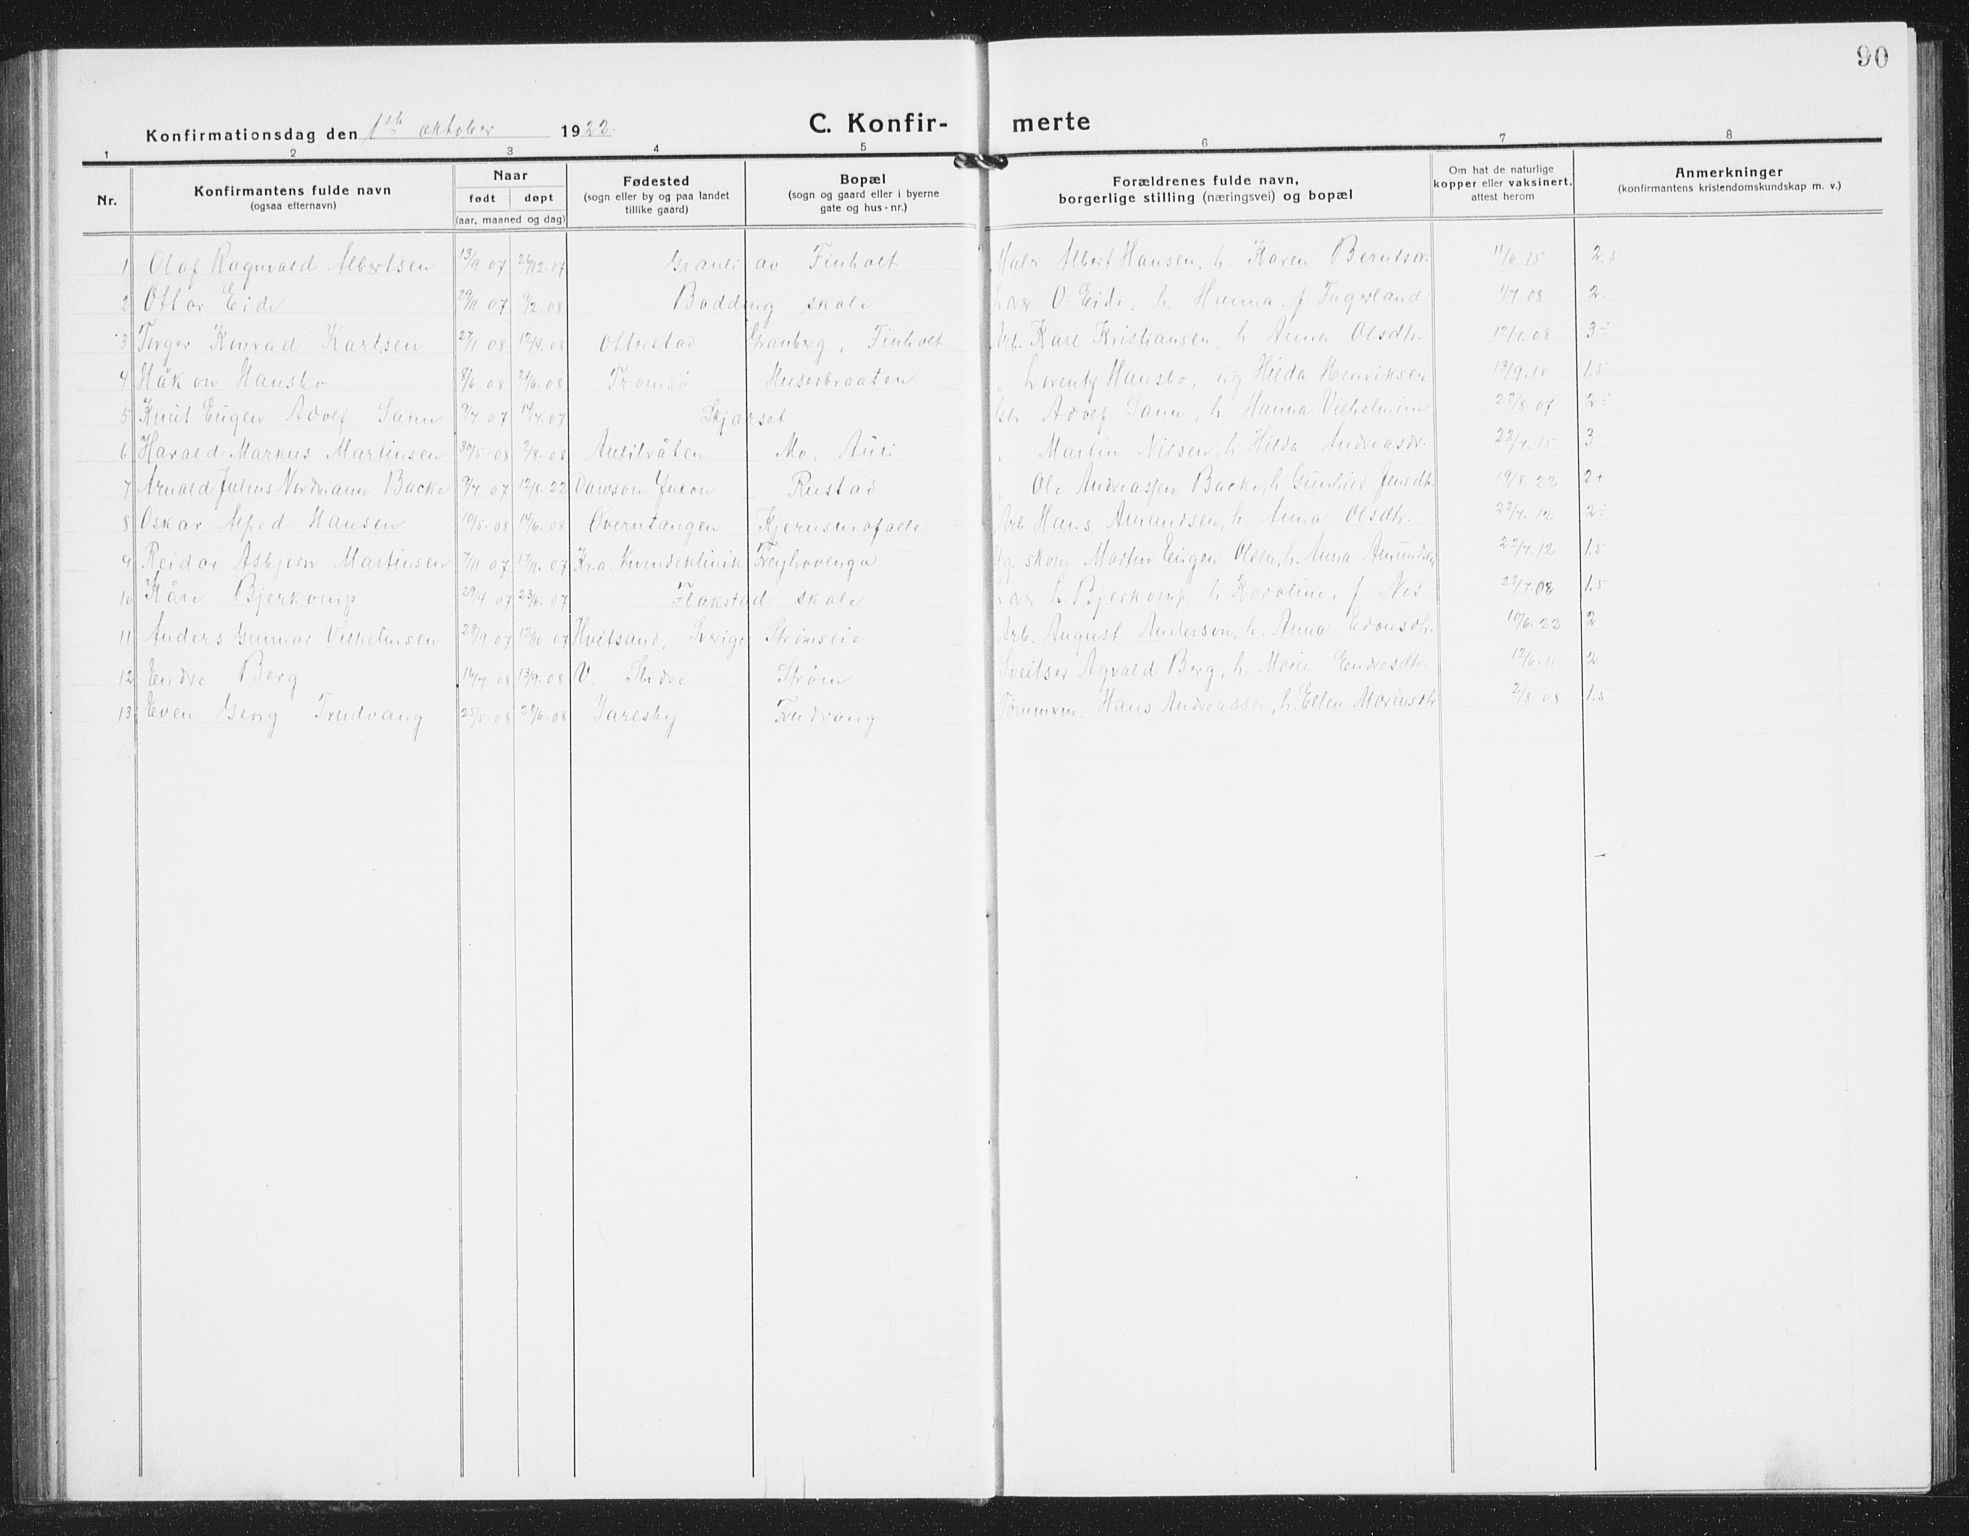 90
Konfirmationsdag den 1ste oktober 1922.
C. Konfir- merte
1 2 3 4 5 6 7 8
Nr.
Konfirmantens fulde navn
(ogsaa efternavn)
Naar
født døpt
(aar, maaned og dag)
Fødested
(sogn eller by og paa landet
tillike gaard)
Bopæl
(sogn og gaard eller i byerne
gate og hus-nr.)
Forældrenes fulde navn,
borgerlige stilling (næringsvei) og bopæl
Om hat de naturlige
kopper eller vaksinert,
attest herom
Anmerkninger
(konfirmantens kristendomskundskap m. v.)
1 Olaf Ragnvald Albertsen 13/9 07 26/12.07 Grauli av Finholt Maler Albert Hansen, h. Karen Berntsdr. 11/6.15 2.5
2 Ottar Eide 29/11 07 9/2.08 Bodding skole Lær O. Eide, h. Hanna, f. Fagerland 1/7.08 2
3 Torger Konrad Karlsen 27/1 08 12/4.08 Otterstad Granberg, Finholt Arb. Karl Kristiansen, h. Anna Olsdtr. 3÷
4 Håkon Hansbo 8/6.08 21/6.08 Tromsø Huserbraaten " Lorentz Hansbo, og Hilda Henriksen 13/9.10 1.5
5 Knut Eugen Adolf Sann 9/7 07 14/7.07 Skjærset Adolf Sann, h. Hanna Vilhelmine 22/8.07 2÷
6 Harald Markus Martinsen 30/5 08 2/8.08 Aulitråten Mo, Auli " Martin Nilsen, h. Hilda Andreasdr. 22/7.15 3
7 Arnold Julius Nordmann Backe 9/7 07 12/8.22 Dawson Yukon Rustad " Ole Andreassen Backe, h. Gunhild Jensdt. 19/8.22 2+
8 Oskar Alfred Hansen 10/5.08 14/6.08 Øverntangen Kjernsmofalle Arb. Hans Amundsen, h. Anna Olsdtr. 22/7.12 2÷
9 Reidar Asbjørn Martinsen 7/11.07 17/11.07 Kr.a. Kvindeklinik Treyhovenga skom. Martin Eugen Olsen, h. Anna Amundsen 22/7.12 1.5
10 Kåre Bjerkomp 29/4 07 23/6.07 Flakstad skole Lær L. Bjerkomp, h. Karoline, f. Nes. 22/7.08 1.5
11 Anders Gunnar Vilhelmsen 28/9 07 12/10 07 Hvitsand, Sverige Strømseie Arb. August Anderson, h. Anna 10/6.22 2
12 Endre Berg 16/7.08 13/9.08 V. Slidre Strøm Sveitser Agvald Berg, h. Marie Endresdtr. 12/6.11 2
13 Even Georg Trudvang 25/5.08 28/6.08 Jaresby Trudvang Tømmerm. Hans Andreassen, h. Ellen Mariusdtr 2/8.08 1.5